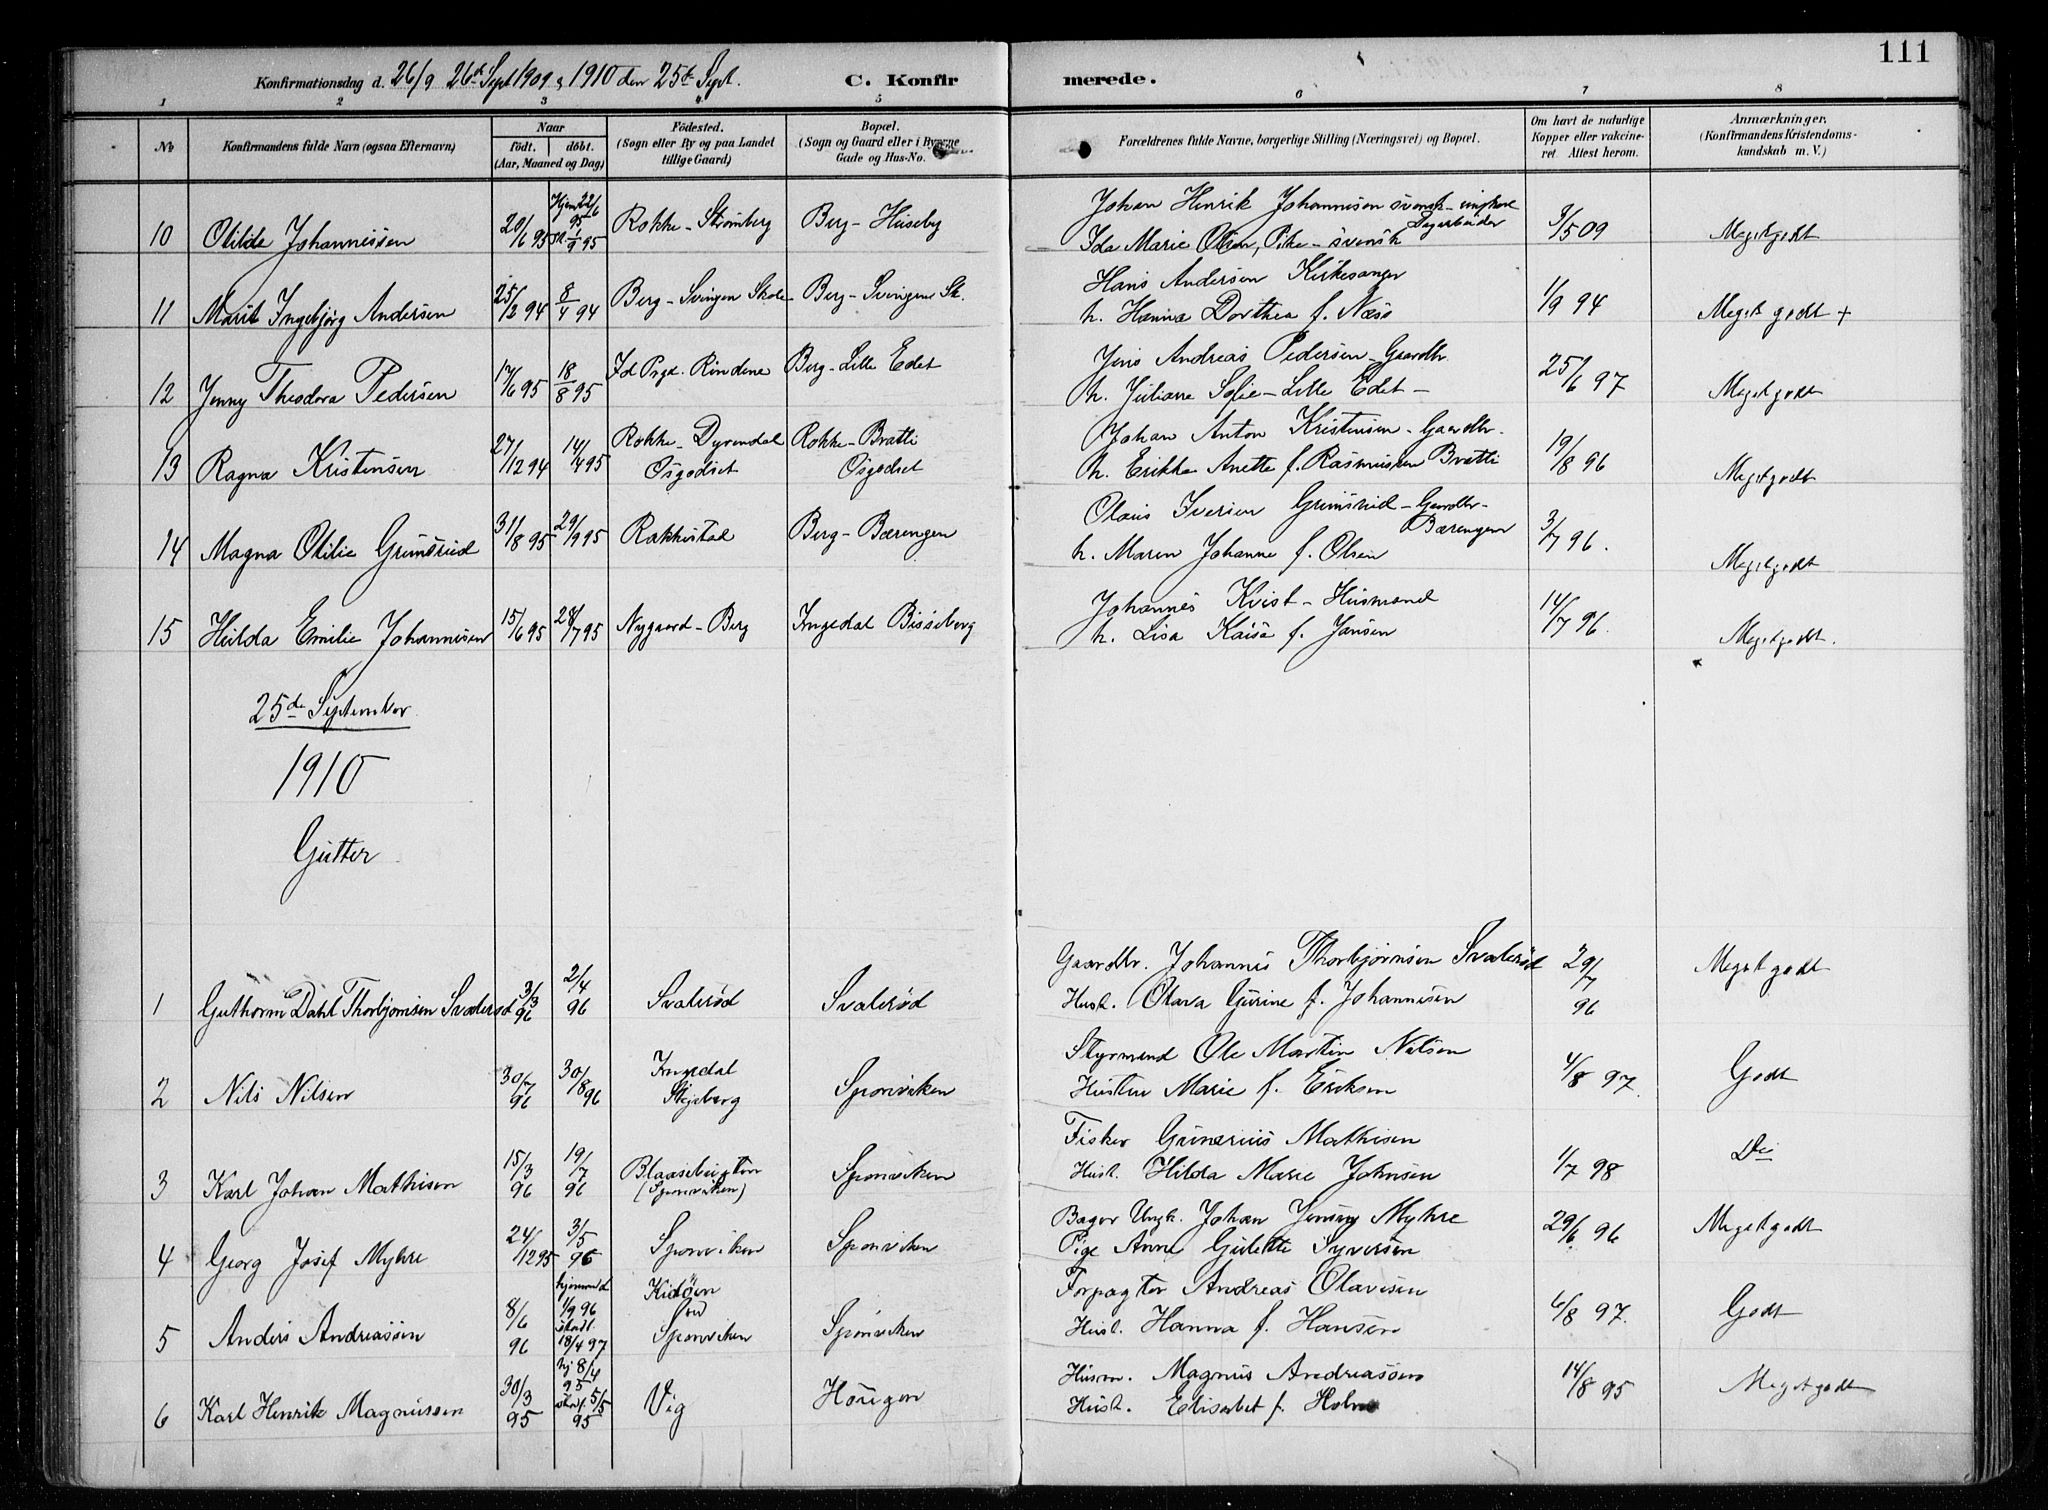 111
Konfirmationsdag d. 26/9 26de Sept 1909 & 1910 den 25de Sept. C. Konfirmerede.
1 2 3 4 5 6 7 8
No Konfirmandens fulde Navn (ogsaa Efternavn) Naar födt. döbt. (Aar, Maaned og Dag) Födested. (Sogn eller By og paa Landet tillige Gaard) Bopæl. (Sogn og Gaard eller i Byerne Gade og Hus-No. Forældrenes fulde Navne, borgerlige Stilling (Næringsvei) og Bopæl. Om havt de naturlige Kopper eller vakcineret. Attest herom. Anmærkninger. (Konfirmandens Kristendomskundskab m. V.)
Johan Henrik Johannissen svensk - ungkare Dagarbeider
10 Otilde Johannissen 20/6 95 Hjem 22/6 95 1/9 95 Rokke - Strømberg Berg - Huseby Ida Marie Olsen, Pike - svensk 3/5 09 Megetgodt
Hans Andersen Kirkesanger
11 Marit Ingebjørg Andersen 25/2 94 8/4 94 Berg - Svingen Skole Berg - Svingene Sk. h. Hanna Dorthea f. Næss 1/9 94 Meget godt +
Jens Andreas Pedersen - Gaardbr.
12 Jenny Theodora Pedersen 17/6 95 18/8 95 Id Prgd. Rindene Berg - Lille Edet h. Juliane Sofie - Lille Edet - 25/6 97 Megetgodt
Johan Anton Kristensen - Gaardbr.
13 Ragna Kristensen 27/12 94 14/7 95 Rokke - Dyrendal Osgodset Rokke - Bratli Osgodset h. Erikke Anette f. Rasmussen Bratli 19/8 96 Megetgodt
Olaus Iversen Grimsrud - Gaardbr. Bærengen
14 Magna Otilie Grimsrud 31/8 95 29/9 95 Rakkestad Berg - Bærengen h. Maren Johanne f. Olsen 3/7 96. Megetgodt
Johannes Kvist - Husmand
15 Hilda Emilie Johannisen 15/6 95 28/7 95 Nygaard - Berg Ingedal Bisseberg h. Lisa Kaisa f. Jansen 14/7 96. Megetgodt.
25de September
1910
Gutter
Gaardbr. Johannes Thorbjørnsen Svalerød
1 Guthorm Dahl Thorbjørnsen Svalerød 3/3 96 2/4 96 Svalerød Svalerød Hust. Olava Gurine f. Johannisen 29/7 96 Megetgodt
Styrmand Ole Martin Nilsen
2 Nils Nilsen 30/7 96 30/8 96 Ingedal Skjeberg Sponviken Hustru Marie f. Eriksen 4/8 97. Godt
Fisker Gunerius Mathisen
3 Karl Johan Mathisen 15/3 96 19/7 96 (Sponviken) Sponviken Hust. Hilda Marie Johnsen 1/7 98 Do
Bager Ungk. Johan Jensen Myhre
4 Georg Josef Myhre 24/12 95 3/5 96 Sponviken Sponviken Pige Anne Gulette Syversen 29/6 96 Megetgodt
Forpagter Andreas Olavesen
5 Anders Andreassen 8/6 96 hjemmed 1/9 96 stadf. 18/4 97 Kidöen ved Sponviken Sponviken Hust. Hanna f. Hansen 6/8 97. Godt
Husm. Magnus Andreassen
6 Karl Henrik Magnussen 30/3 95 hj 8/4 95 stadf. 5/5 95 Vig Hougen Hust. Elisabet f. Holm 14/8 95 Megetgodt